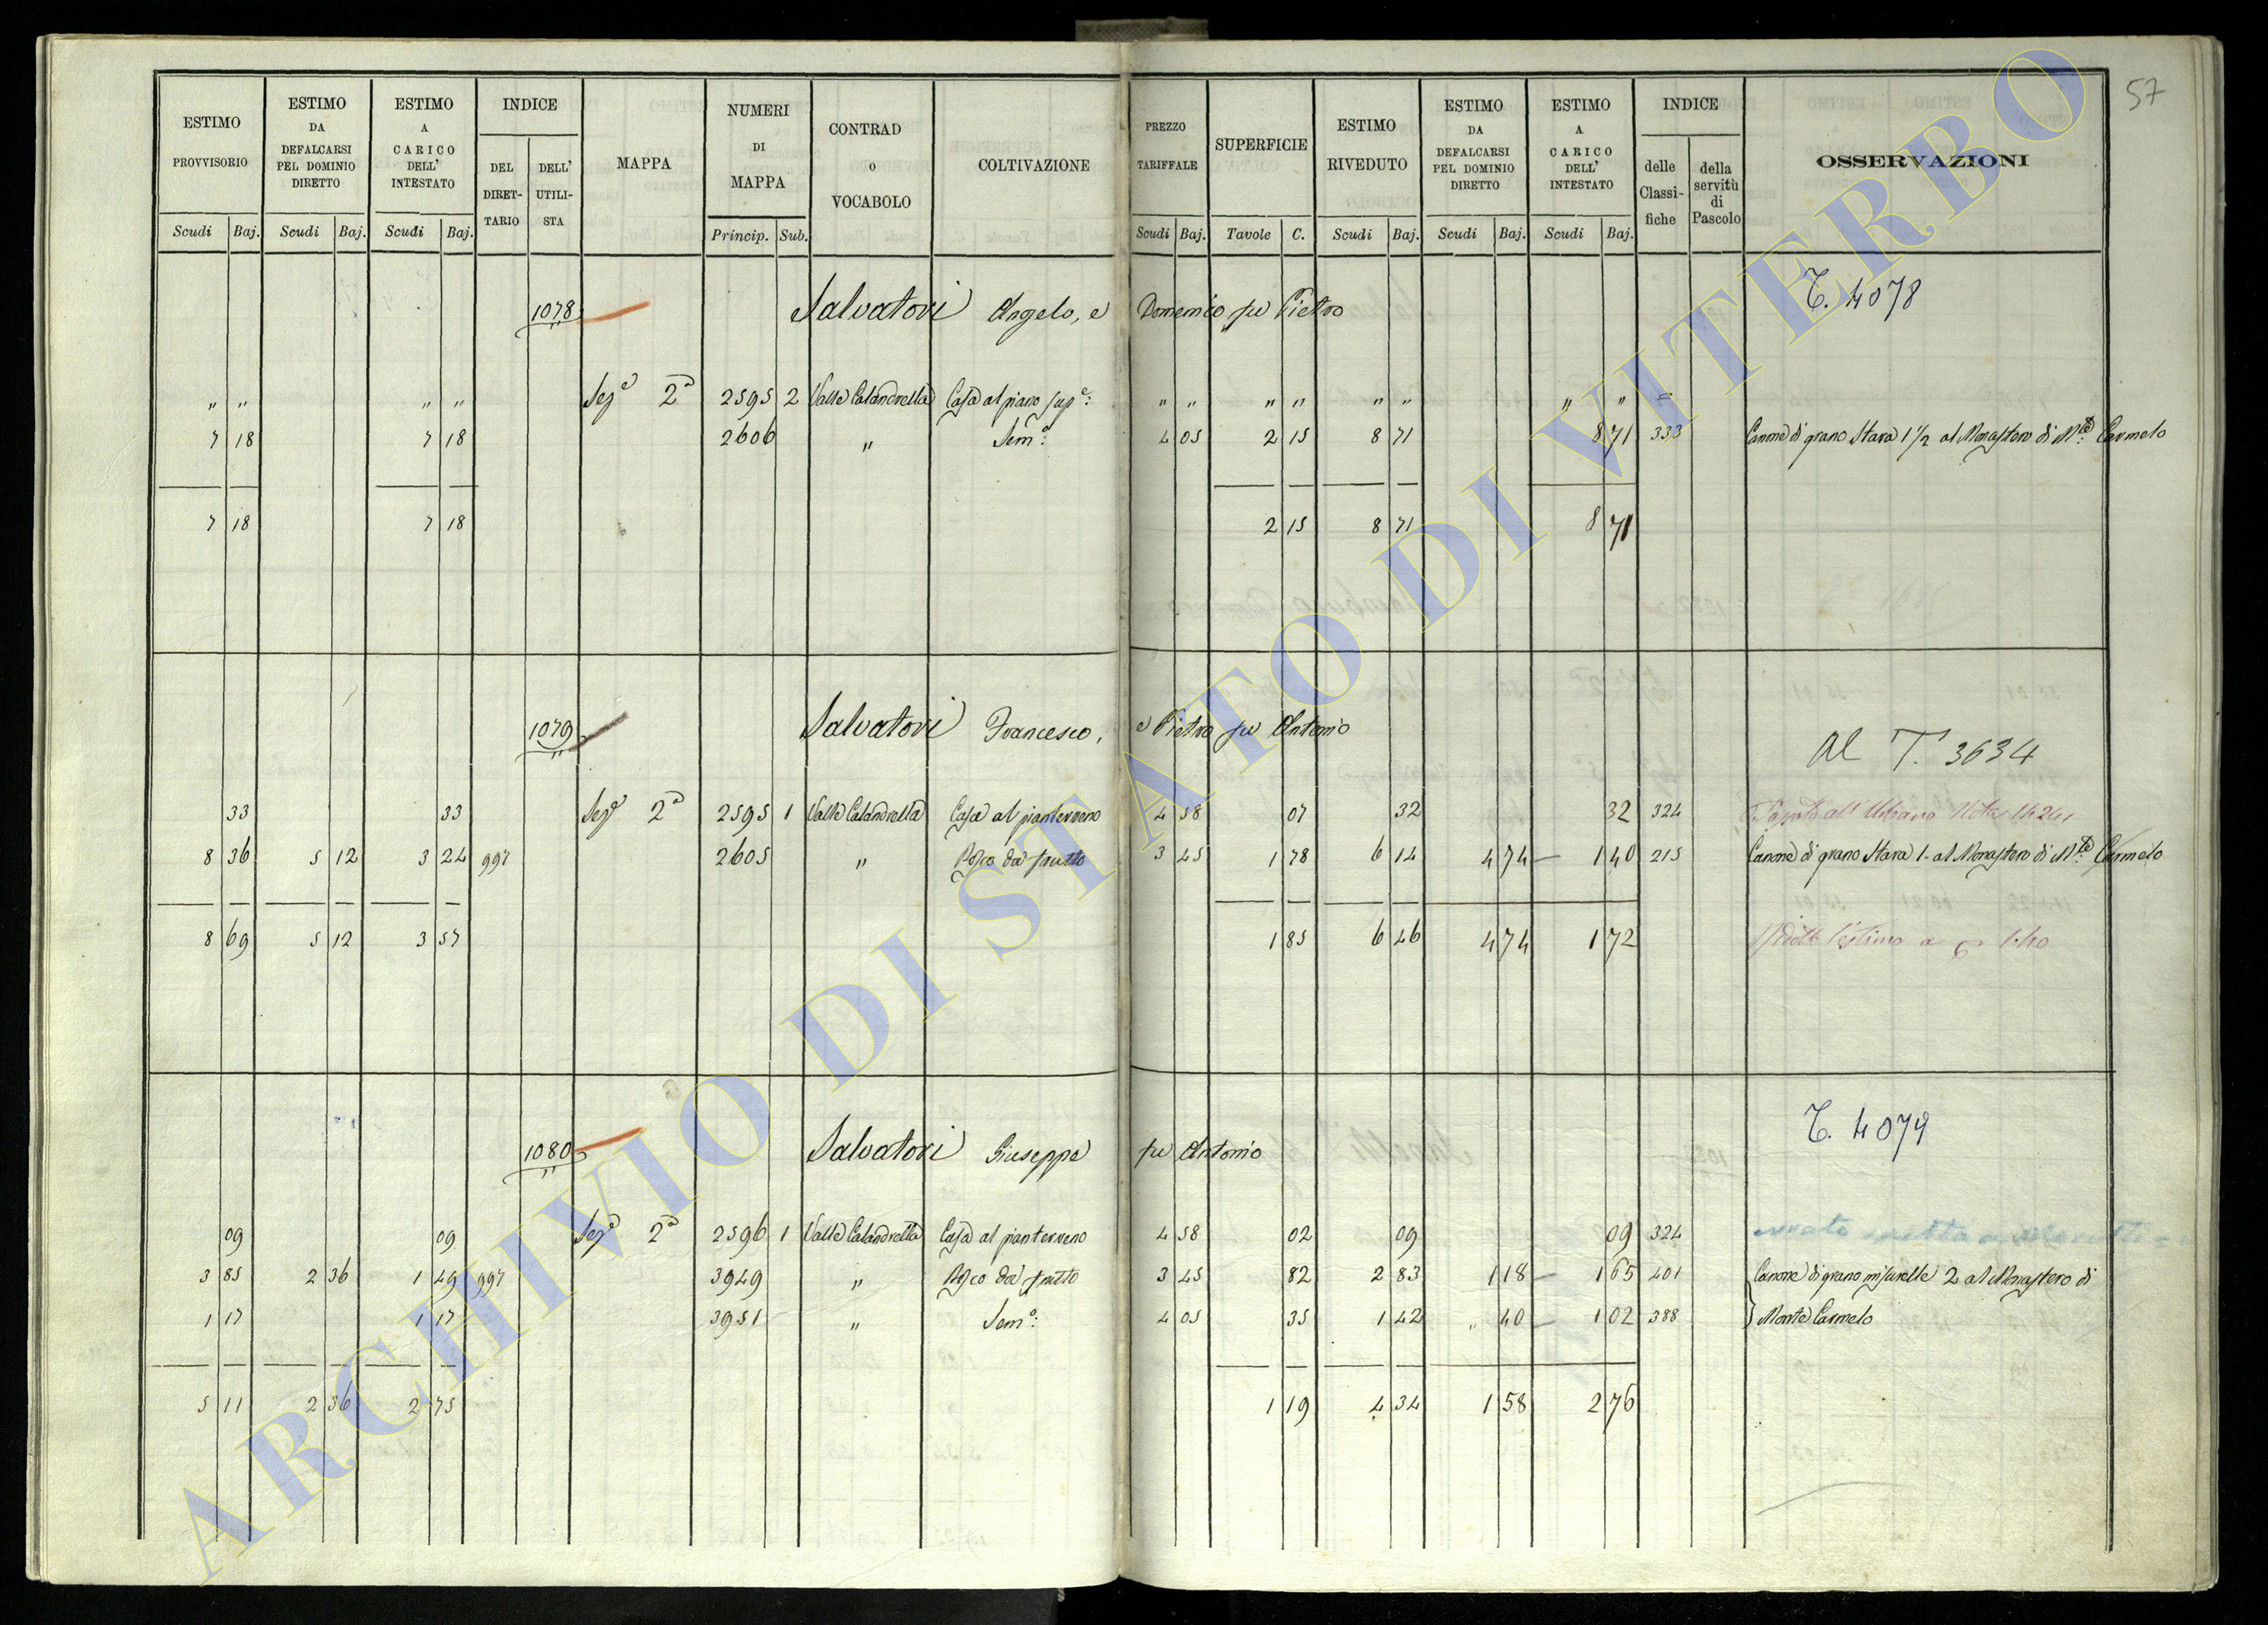 57
ESTIMO PROVVISORIO Scudi Baj.
ESTIMO DA DEFALCARSI PEL DOMINIO DIRETTO Scudi Baj.
ESTIMO A CARICO DELL' INTESTATO Scudi Baj.
INDICE DEL DIRET-TARIO DELL' UTILI-STA
MAPPA
NUMERI DI MAPPA Princip. Sub.
CONTRAD o VOCABOLO
COLTIVAZIONE
PREZZO TARIFFALE Scudi Baj.
SUPERFICIE Tavole C.
ESTIMO RIVEDUTO Scudi Baj.
ESTIMO DA DEFALCARSI PEL DOMINIO DIRETTO Scudi Baj.
ESTIMO A CARICO DELL' INTESTATO Scudi Baj.
INDICE delle Classi-fiche della servitù di Pascolo
OSSERVAZIONI
1078 Salvatori Angelo, e Domenico fu Pietro T. 4078
" " " " Sezᵉ 2ª 2595 2 Valle Calandrella Casa al piano supᵉ: " " " " " " " " =
7 18 7 18 2606 " Semº: 4 05 2 15 8 71 8 71 333 Canone di grano Stara 1 1/2 al Monastero di Mᵗᵉ: Carmelo
7 18 7 18 2 15 8 71 8 71
1079 Salvatori Francesco, e Pietro fu Antonio al T. 3634
33 33 Sezᵉ 2ª 2595 1 Valle Calandrella Casa al pianterreno 4 58 07 32 32 324 all'Urbano
8 36 5 12 3 24 997 2605 " Pasco da frutto 3 45 1 78 6 14 4 74 1 40 215 Canone di grano Stara 1 - al Monastero di Mᵗᵉ: Carmelo
8 69 5 12 3 57 1 85 6 46 4 74 1 72 l'estimo a 1.40
1080 Salvatori Giuseppe fu Antonio T. 4079
09 09 Sezᵉ 2ª 2596 1 Valle Calandrella Casa al pianterreno 4 58 02 09 09 324
3 85 2 36 1 49 997 3949 " Pasco da frutto 3 45 82 2 83 1 18 1 65 401 Canone di grano misurelle 2 al Monastero di
1 17 1 17 3951 " Semº: 4 05 35 1 42 " 40 1 02 388 Monte Carmelo
5 11 2 36 2 75 1 19 4 34 1 58 2 76
ARCHIVIO DI STATO DI VITERBO